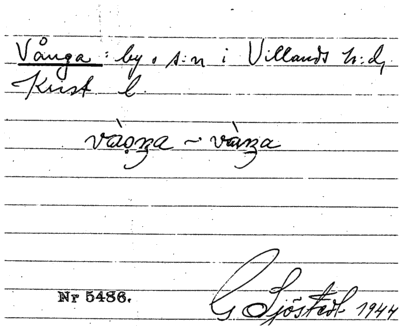 Vånga: by o s:n i Villands h:d,
Krist l.
vàọŋa ~ vàŋa
Nr 5486.
G Sjöstedt 1944